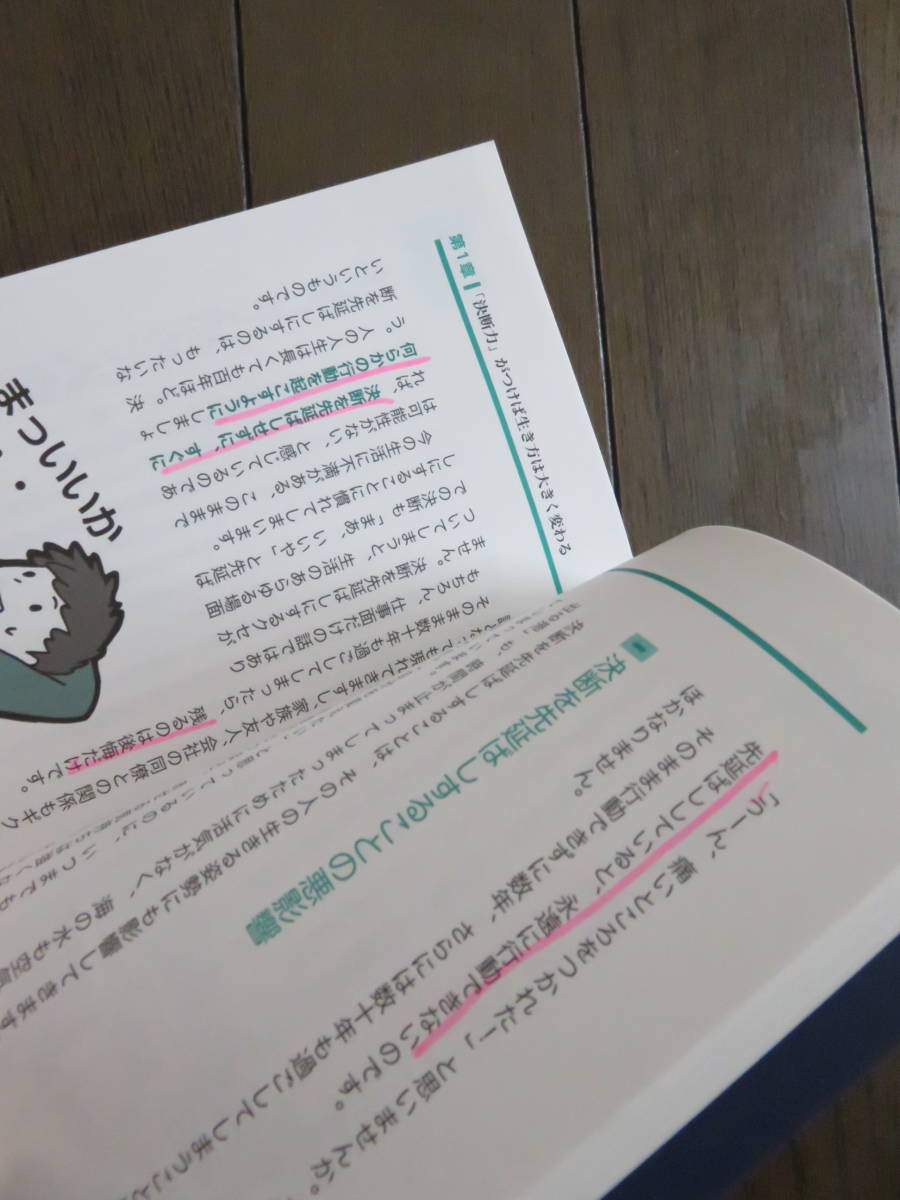 「うーん、痛いところをつかれた！」と思いませんか。
先延ばししていると、永遠に行動できないのです。
そのまま行動できずに数年、さらには数十年も過ごしてしまうこと
ほかなりません。
決断を先延ばしすることの悪影響
決断を先延ばしすることは、その人の生きる姿勢にも影響してきます
時間が止まってしまったために活気がなく、海の水も空気
第1章 「決断力」がつけば生き方は大きく変わる
ても現れてきますし、家族や友人、会社の同僚との関係もギク
そのまま数十年も過ごしてしまったら、残るのは後悔だけです。
もちろん、仕事面だけの話ではあり
ません。決断を先延ばしにするクセが
ついてしまうと、生活のあらゆる場面
での決断も「まあ、いいや」と先延ば
しにすることに慣れてしまいます。
今の生活に不満がある、このままで
は可能性がない、と感じているのであ
れば、決断を先延ばしせずに、すぐに
何らかの行動を起こすようにしましょ
う。人の人生は長くても百年ほど。決
断を先延ばしにするのは、もったいな
いというものです。
まっいいか